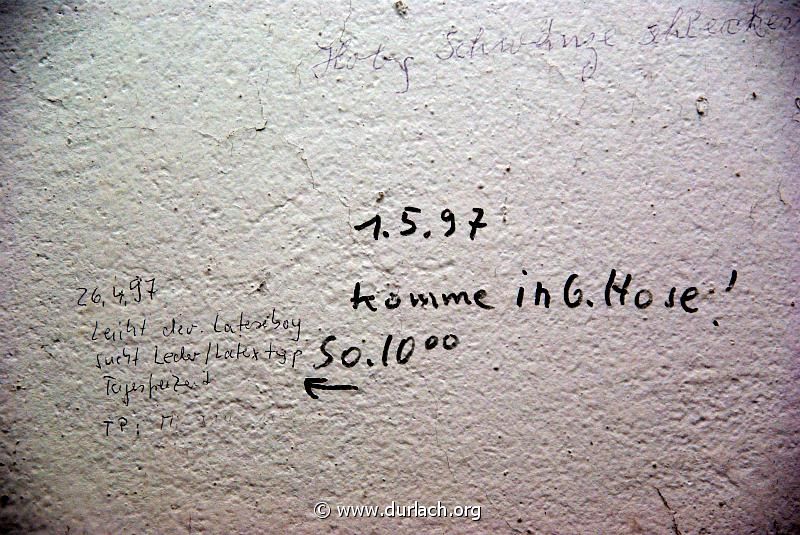 Schwänze schlecken
1.5.97
komme in G. Hose!
So. 10⁰⁰
26.4.97
Leicht dev. Latexboy
sucht Leder/Latextyp
TP:
© www.durlach.org